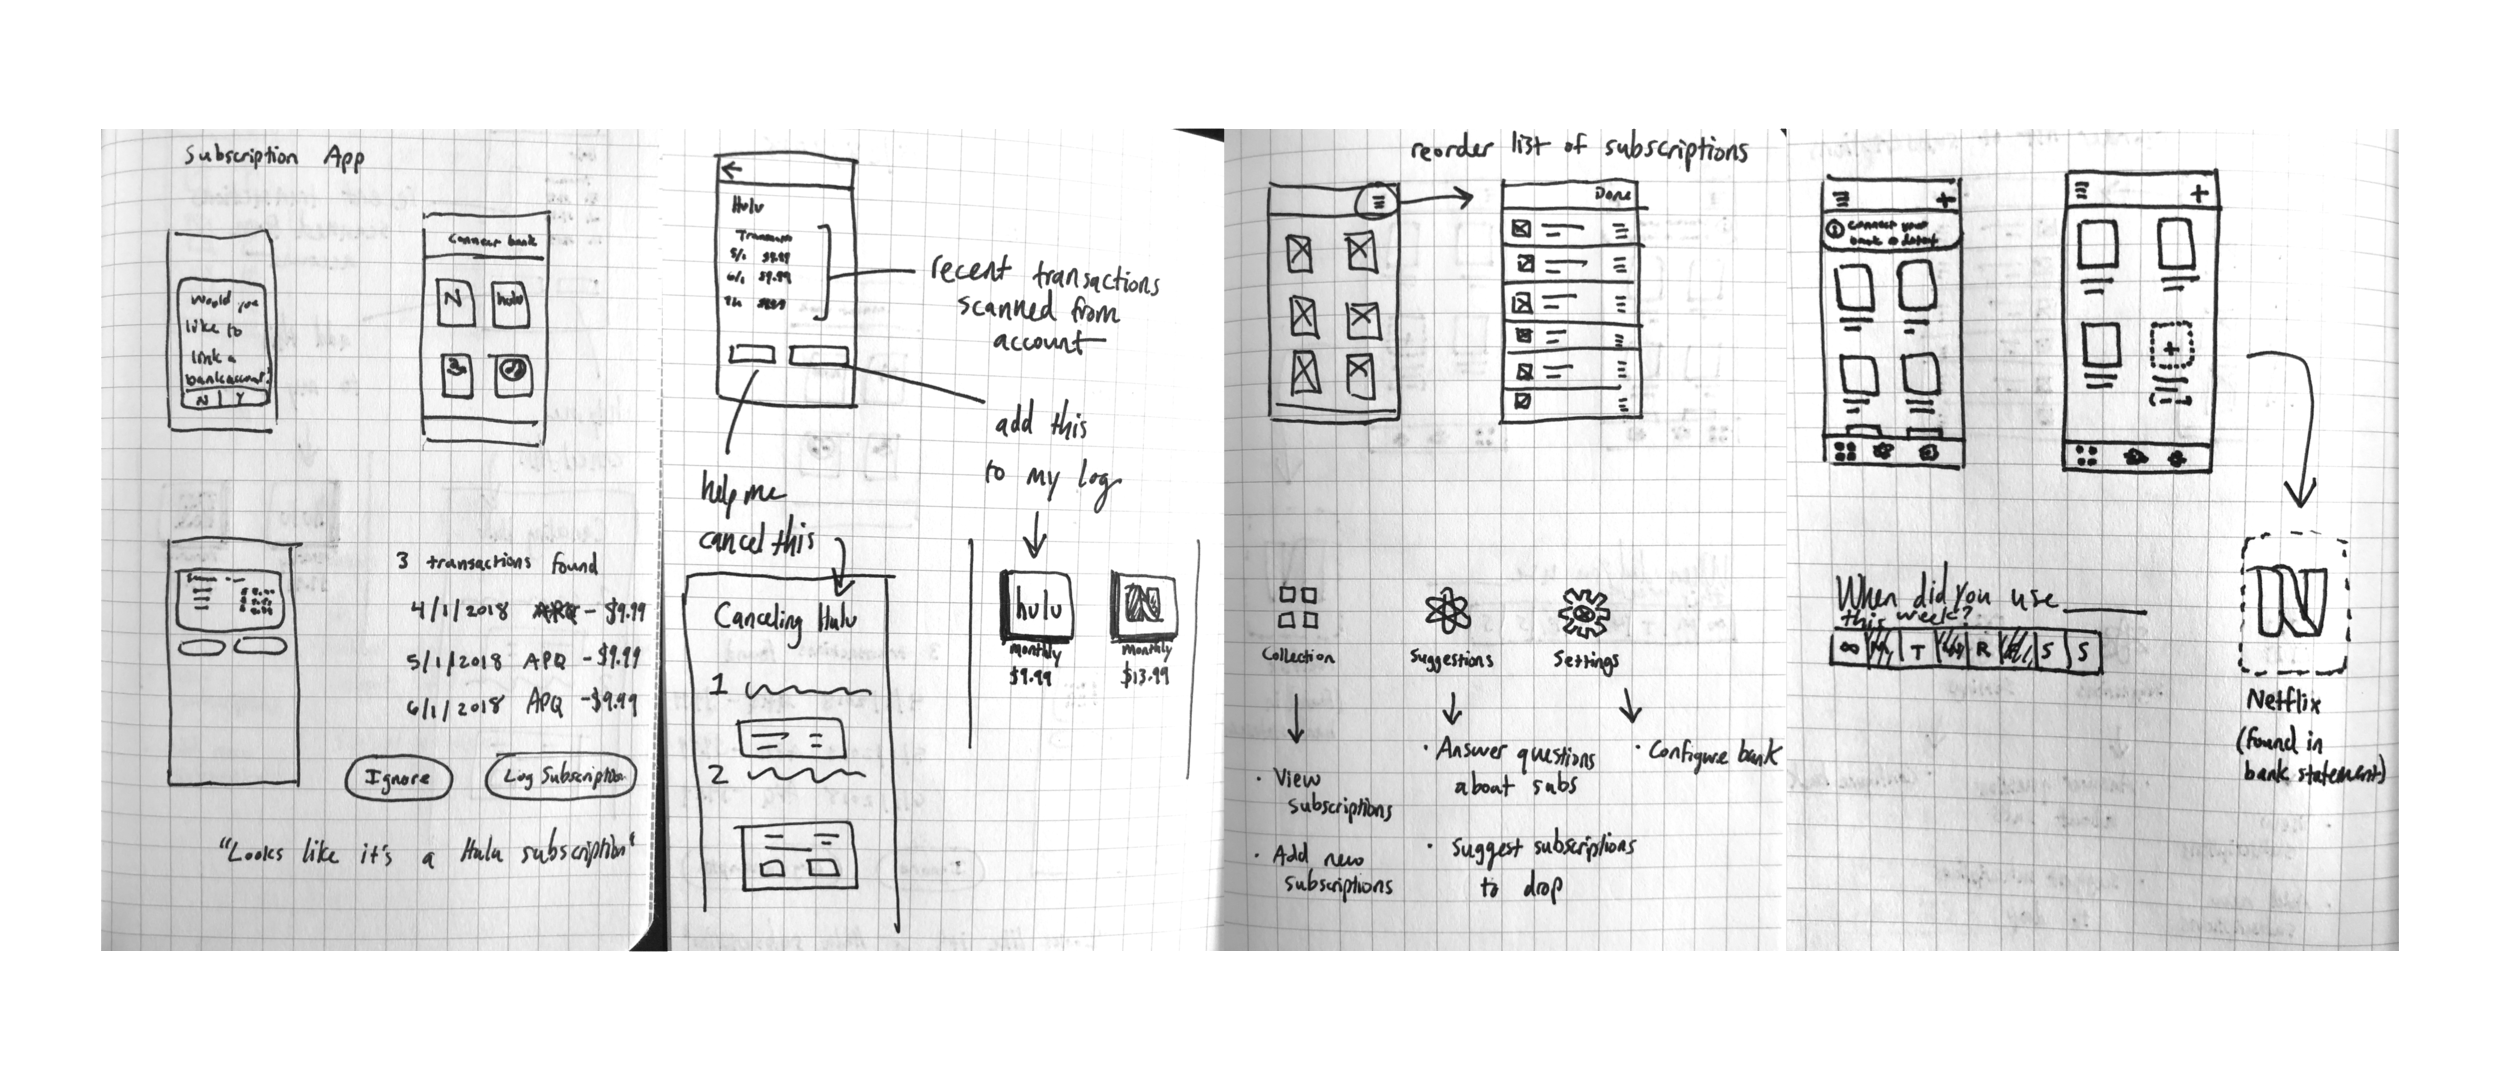 Subscription App
Would you
like to
link a
bank account?
N Y
Connect bank
N hulu
3 transactions found
4/1/2018 - $9.99
5/1/2018 APQ - $9.99
6/1/2018 APQ - $9.99
Ignore
Log Subscription
"Looks like it's a Hulu subscription"
Hulu
5/1 $9.99
6/1 $9.99
recent transactions
scanned from
account
add this
to my log
help me
cancel this
Canceling Hulu
1
2
hulu
monthly
$9.99
N
monthly
$13.99
reorder list of subscriptions
Done
Collection
Suggestions
Settings
· View
subscriptions
· Add new
subscriptions
· Answer questions
about subs
· Suggest subscriptions
to drop
· Configure bank
+
Connect your
+
+
When did you use ____
this week?
T R S S
N
Netflix
(found in
bank statement)